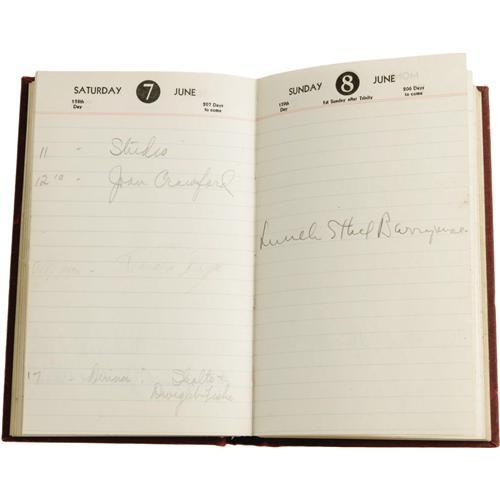 SATURDAY 7 JUNE
158th Day
207 Days to come
11 - Studio
12 10 - Joan Crawford
Dinner
SUNDAY 8 JUNE
159th Day
1st Sunday after Trinity
206 Days to come
Lunch Ethel Barrymore